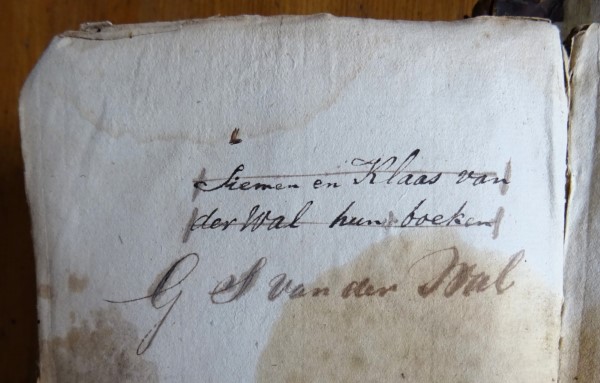 Siemen en Klaas van
der Wal hun boeken
G S van der Wal